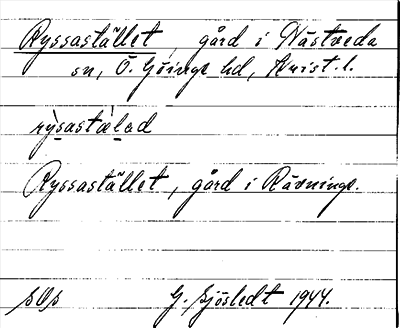 Ryssastället, gård i Nästveda
sn, Ö. Göinge hd, Krist. l.
rỳsastæ̀lad
Ryssastället, gård i Rävninge.
G. Sjöstedt 1944.